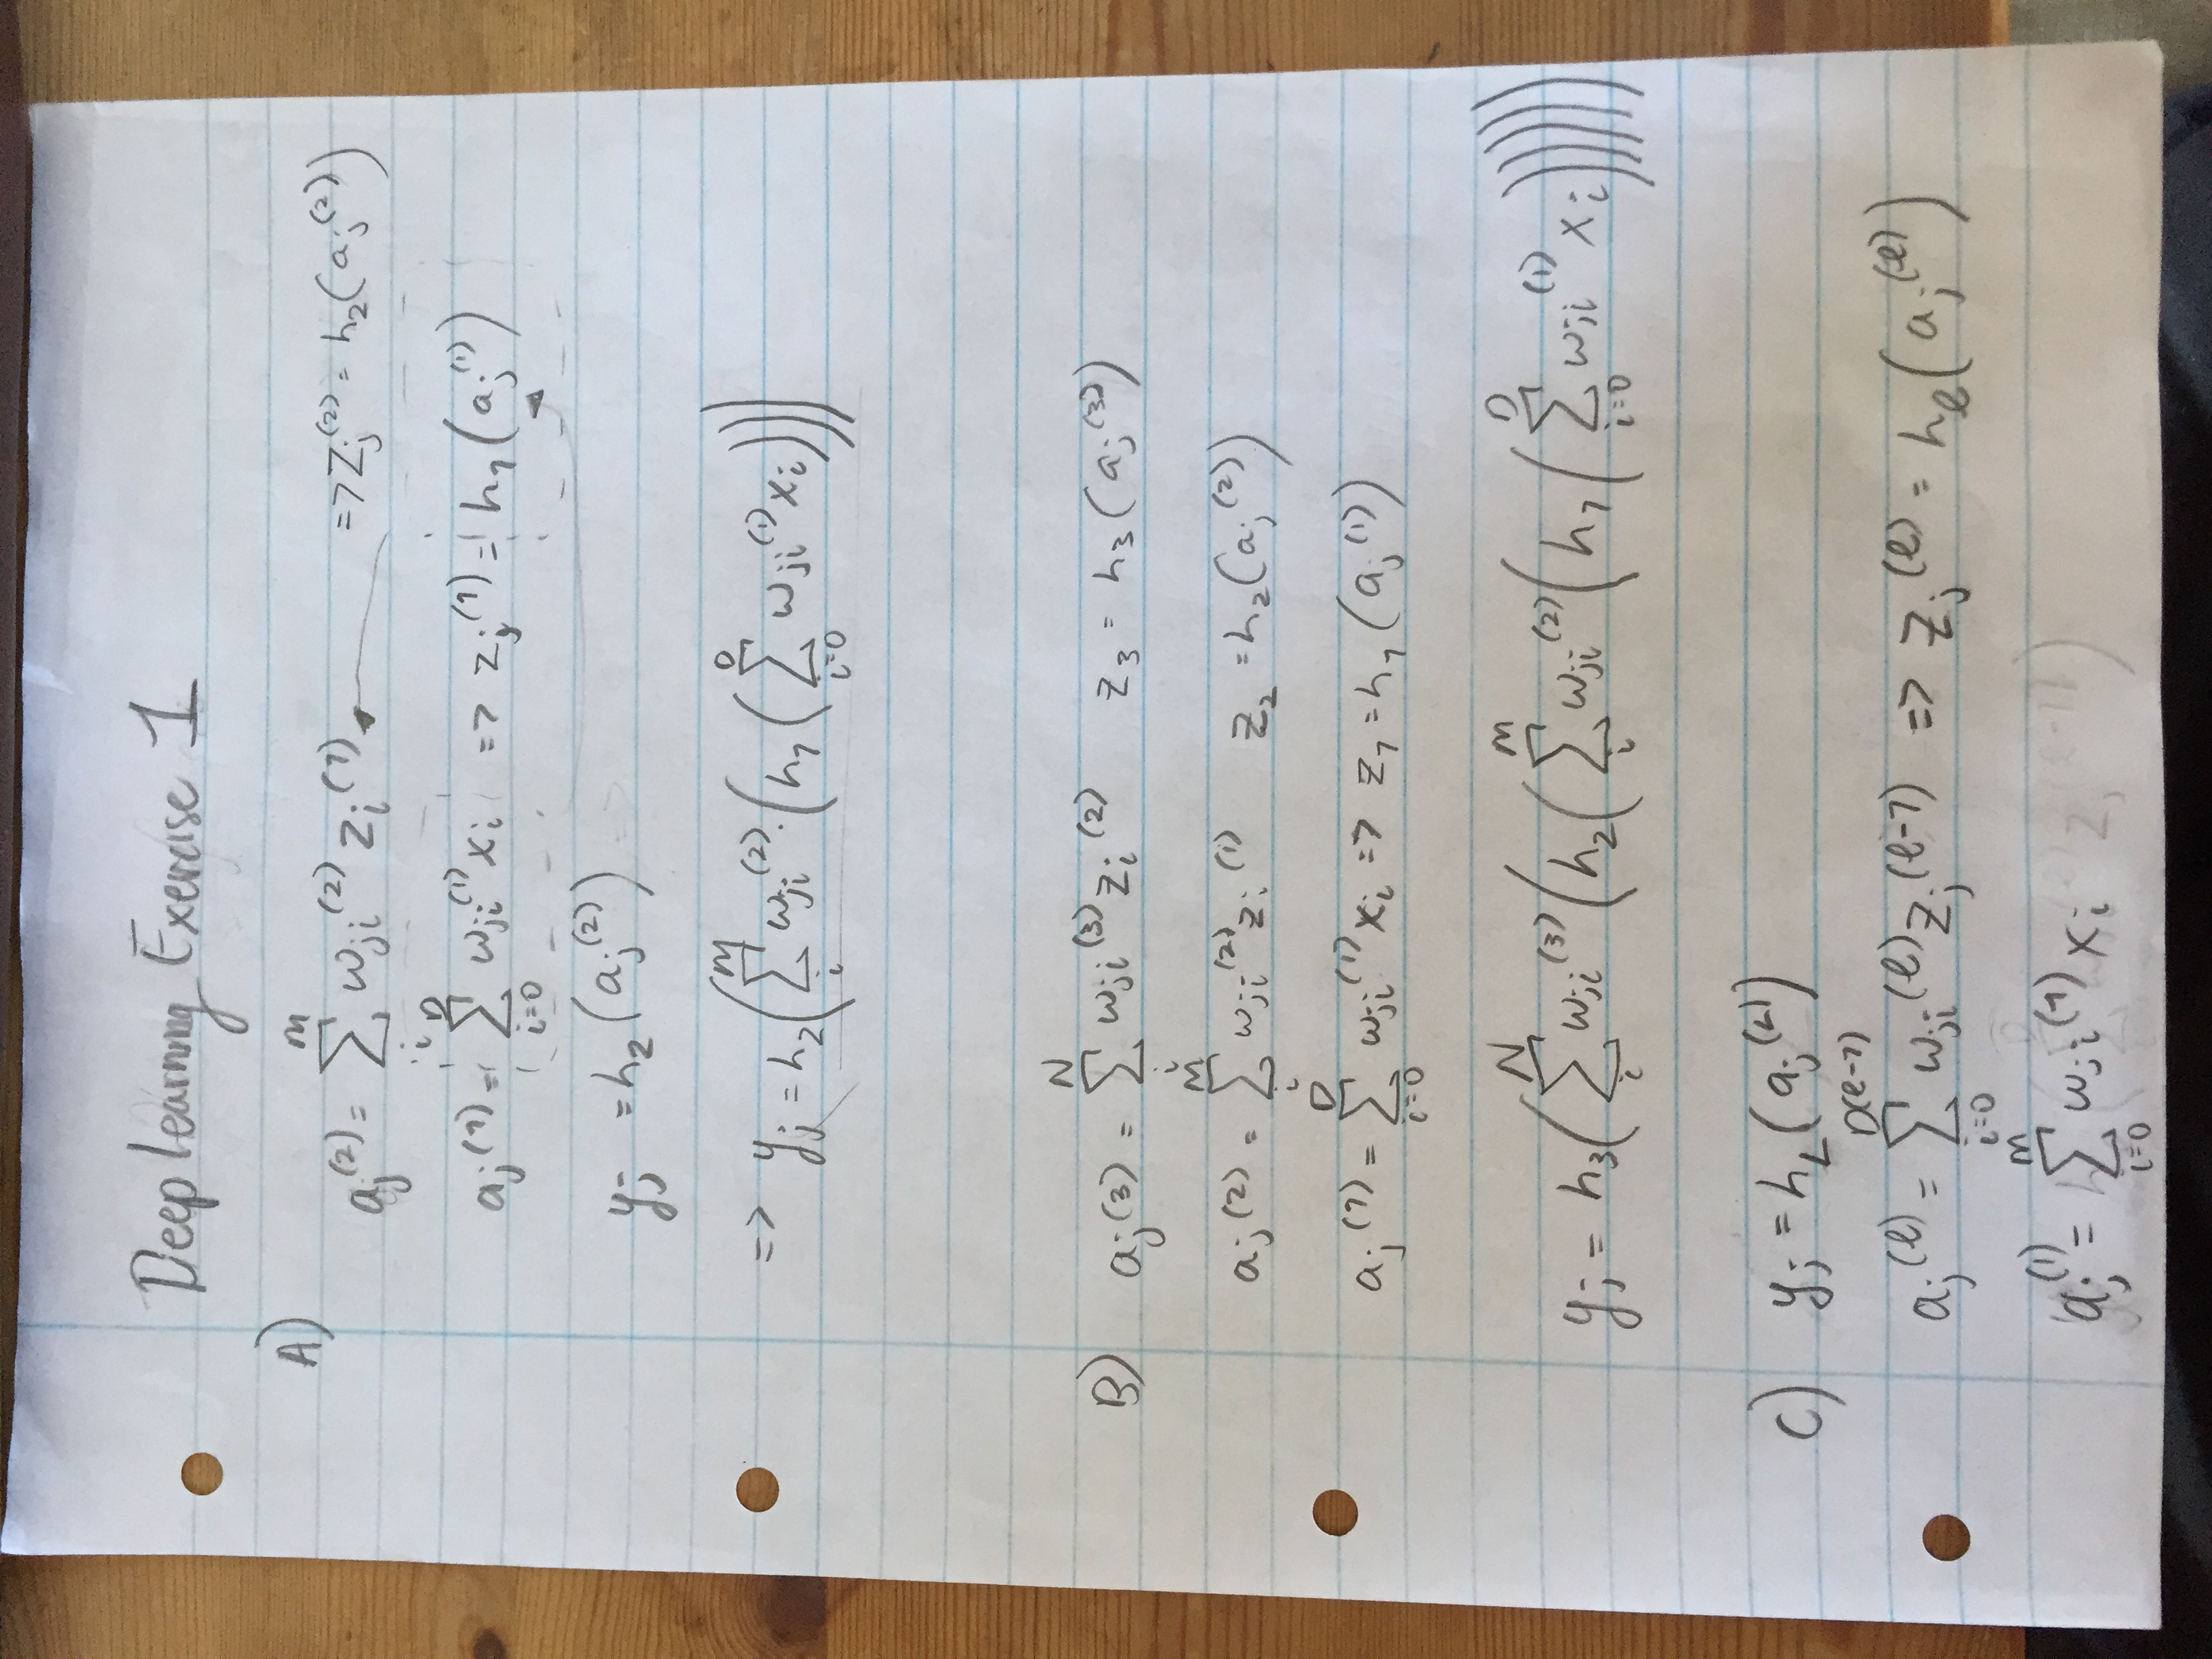 Deep Learning Exercise 1
A)
a_j^(2) = ∑_i^M w_ji^(2) z_i^(1) => z_j^(2) = h_2(a_j^(2))
a_j^(1) = ∑_{i=0}^D w_ji^(1) x_i => z_j^(1) = h_1(a_j^(1))
y_j = h_2(a_j^(2))
=> y_j = h_2(∑_i^M w_ji^(2) · (h_1(∑_{i=0}^D w_ji^(1) x_i)))
B) a_j^(3) = ∑_i^N w_ji^(3) z_i^(2) z_3 = h_3(a_j^(3))
a_j^(2) = ∑_i^M w_ji^(2) z_i^(1) z_2 = h_2(a_j^(2))
a_j^(1) = ∑_{i=0}^D w_ji^(1) x_i => z_1 = h_1(a_j^(1))
y_j = h_3(∑_i^N w_ji^(3) (h_2(∑_i^M w_ji^(2) (h_1(∑_{i=0}^D w_ji^(1) x_i)))))
C) y_j = h_L(a_j^(L))
a_j^(l) = ∑_{i=0}^{D(l-1)} w_ji^(l) z_j^(l-1) => z_j^(l) = h_l(a_j^(l))
a_j^(1) = ∑_{i=0}^M w_ji^(1) x_i